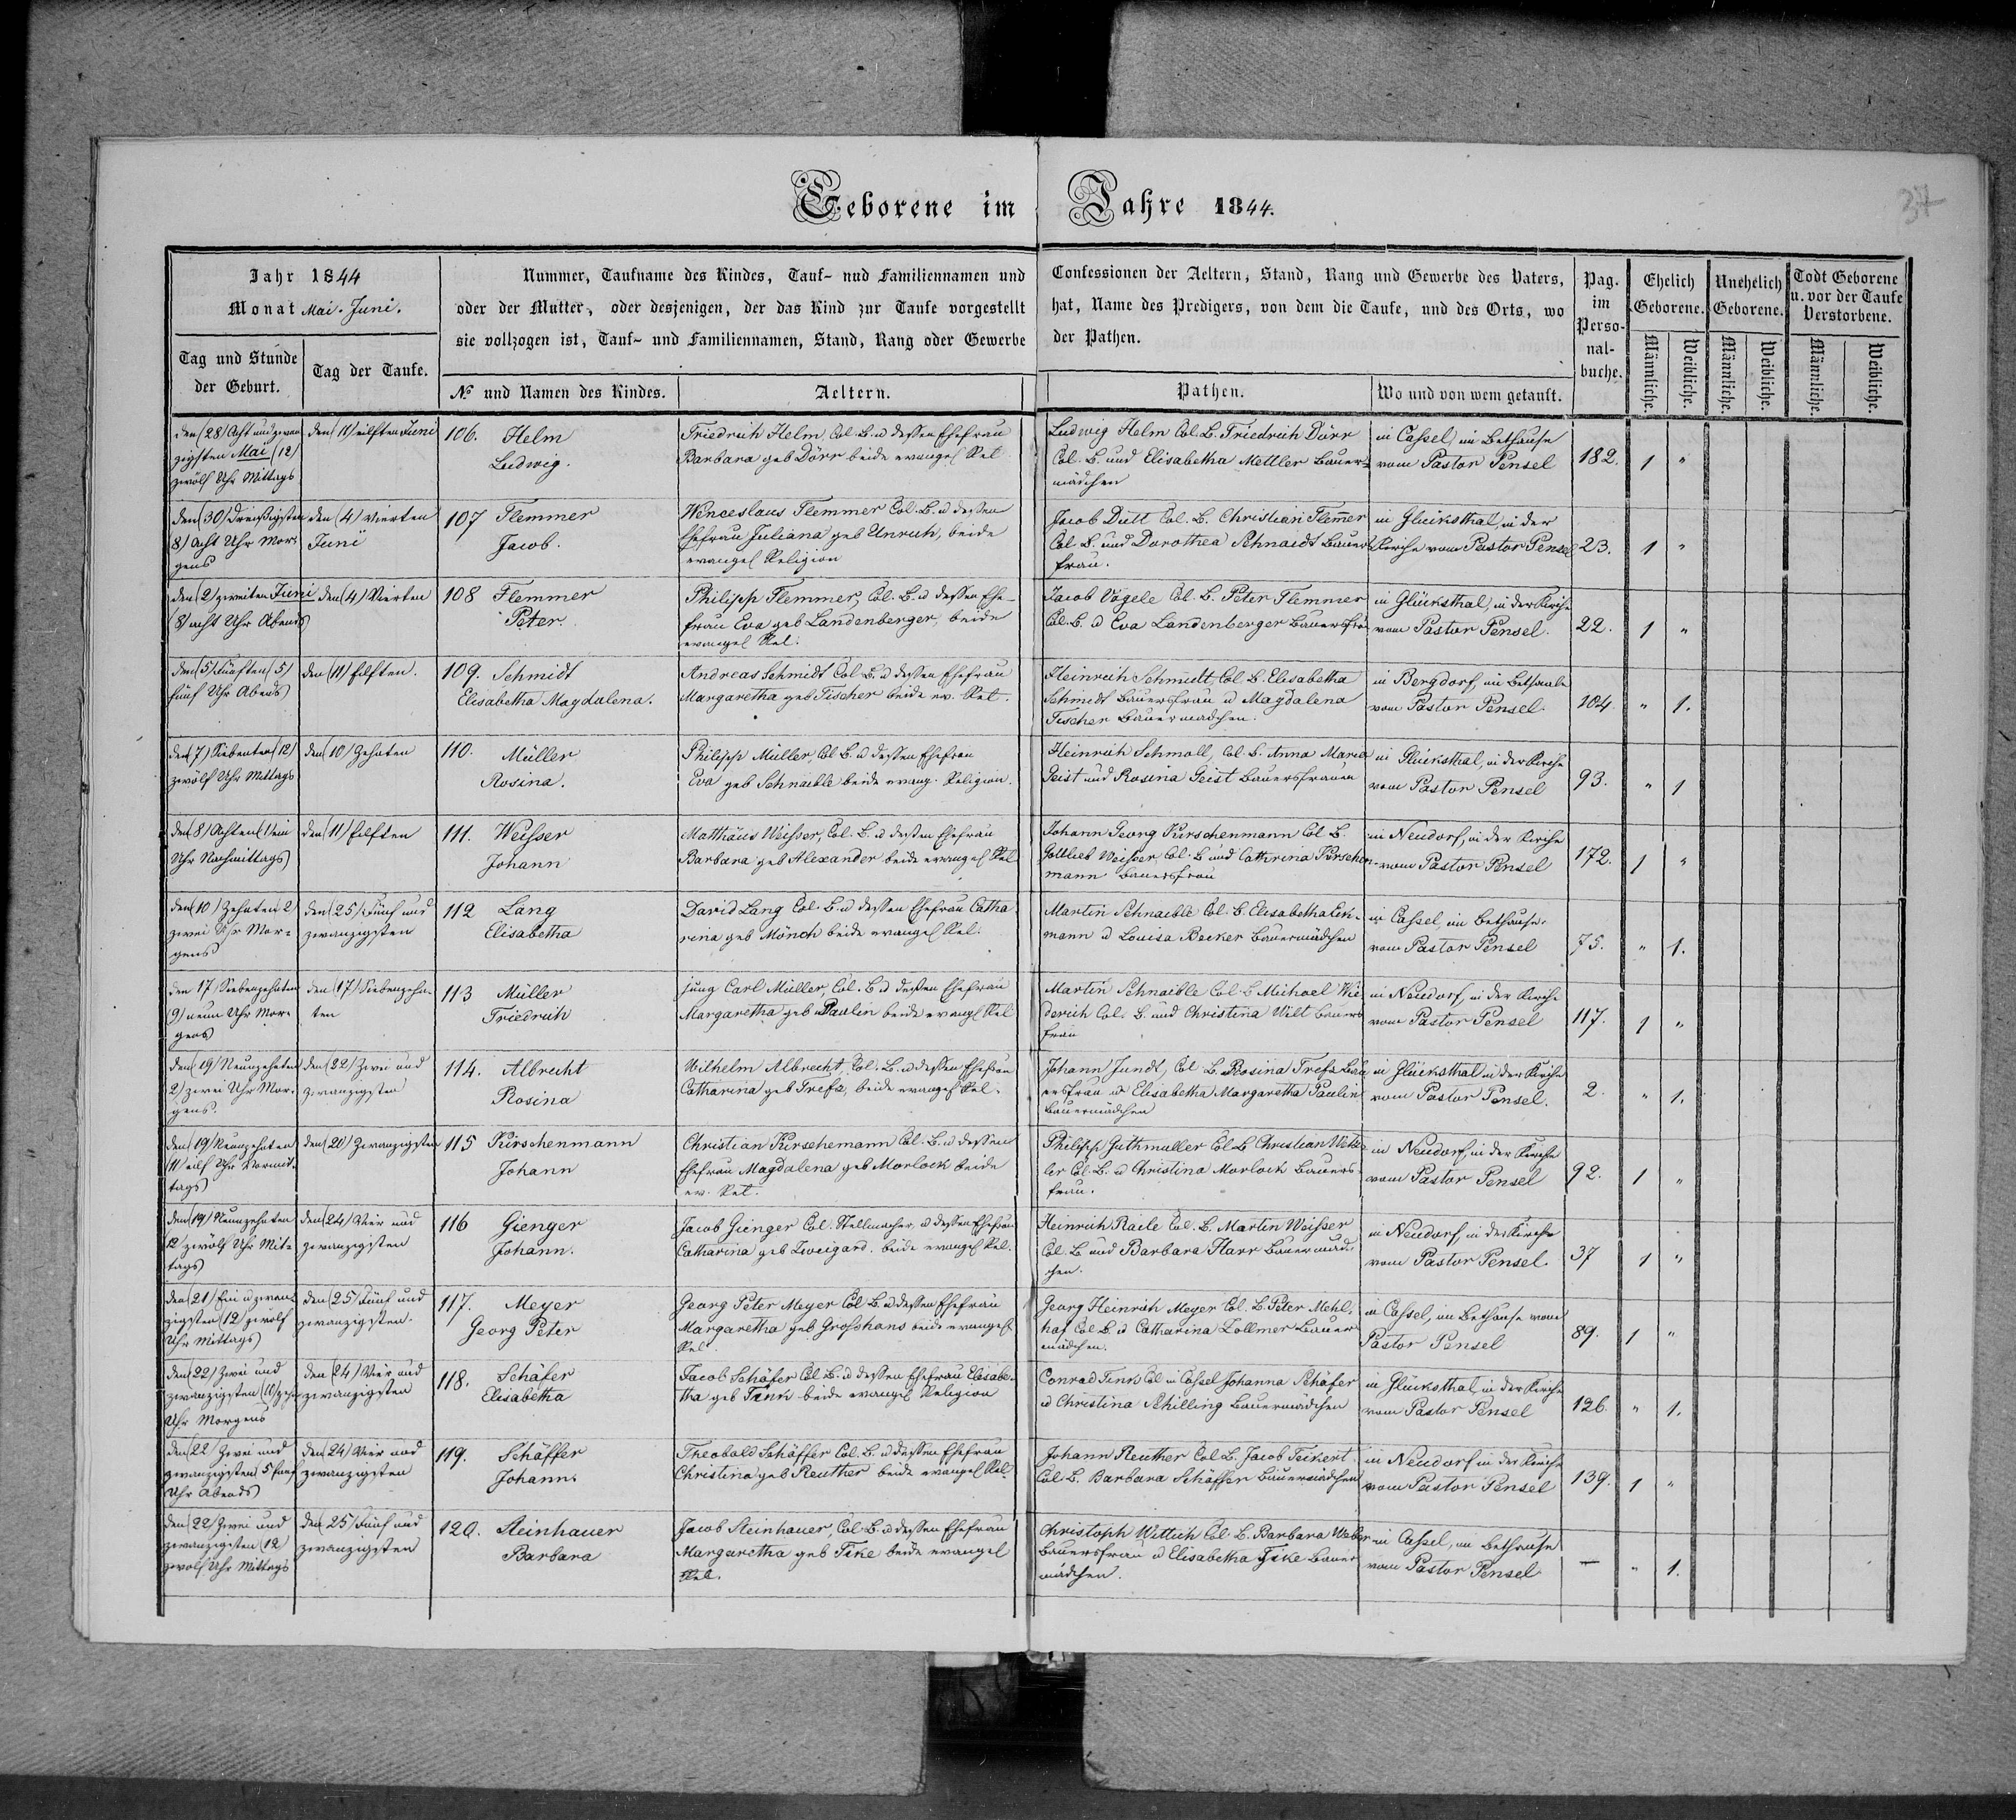 Geborene im Jahre 1844.
37
Jahr 1844
Monat Mai. Juni.
Tag und Stunde der Geburt.
Tag der Taufe.
Nummer, Taufname des Kindes, Tauf- und Familiennamen und
oder der Mutter, oder desjenigen, der das Kind zur Taufe vorgestellt
sie vollzogen ist, Tauf- und Familiennamen, Stand, Rang oder Gewerbe
№ und Namen des Kindes.
Aeltern.
Confessionen der Aeltern, Stand, Rang und Gewerbe des Vaters,
hat, Name des Predigers, von dem die Taufe, und des Orts, wo
der Pathen.
Pathen.
Wo und von wem getauft.
Pag. im Perso- nal- buche.
Ehelich Geborene.
Unehelich Geborene.
Todt Geborene u. vor der Taufe Verstorbene.
Männliche. Weibliche. Männliche. Weibliche. Männliche. Weibliche.
den (28) Acht und zwan
zigsten Mai (12)
zwölf Uhr Mittags
den (11) eilften Juni
106. Helm
Ludwig.
Friedrich Helm, Col. B. u dessen Ehefrau
Barbara geb Dörr beide evangel Rel
Ludwig Helm Col. B. Friedrich Dörr
Col. B. und Elisabetha Mettler Bauer-
mädchen
in Cassel, im Bethause
vom Pastor Pensel
182. 1 "
den (30) Dreißigsten
8) acht Uhr Mor-
gens
den (4) vierten
Juni
107 Flemmer
Jacob.
Wenceslaus Flemmer Col. B. u dessen
Ehefrau Juliana geb Unruh, beide
evangel Religion
Jacob Dutt Col. B. Christian Flemer
Col. B. und Dorothea Schnaidt Bauers
frau.
in Glücksthal, in der
Kirche vom Pastor Pensel
23. 1 "
den (2) zweiten Juni
8) acht Uhr Abends
den (4) Vierten
108 Flemmer
Peter.
Philipp Flemmer, Col. B. u dessen Ehe-
frau Eva geb Landenberger, beide
evangel Rel.
Jacob Vögele Col. B. Peter Flemmer
Col. B. u Eva Landenberger Bauersfrau
in Glücksthal, in der Kirche
vom Pastor Pensel.
22. 1 "
den (5) Fünften (5)
fünf Uhr Abends
den (11) eilften.
109. Schmidt
Elisabetha Magdalena.
Andreas Schmidt Col. B. u dessen Ehefrau
Margaretha geb Fischer beide ev. Rel.
Heinrich Schmidt Col. B. Elisabetha
Schmidt Bauersfrau u Magdalena
Fischer Bauermädchen.
in Bergdorf, im Bethsaale
vom Pastor Pensel.
104. " 1.
den (7) Siebenten (12)
zwölf Uhr Mittags
den (10) Zehnten
110. Müller
Rosina.
Philipp Müller, Col. B. u dessen Ehefrau
Eva geb Schnaible beide evang. Religion.
Heinrich Schmoll, Col. B. Anna Maria
Geist und Rosina Geist Bauersfrauen
in Glücksthal, in der Kirche
vom Pastor Pensel
93. " 1
den (8) Achten (1) ein
Uhr Nachmittags
den (11) eilften
111. Weisser
Johann
Matthäus Weisser, Col. B. u dessen Ehefrau
Barbara geb Alexander beide evangel Rel
Johann Georg Kirschenmann Col B.
Gottlieb Weisser, Col. B und Catherina Kirschen-
mann Bauersfrau
in Neudorf, in der Kirche
vom Pastor Pensel
172. 1 "
den (10) Zehnten 2)
zwei Uhr Mor-
gens
den (25) Fünf und
zwanzigsten
112 Lang
Elisabetha
David Lang Col. B. u dessen Ehefrau Catha
rina geb Mönch beide evangel Rel.
Martin Schnaible Col. B. Elisabetha Eck-
mann u Louisa Becker Bauermädchen
in Cassel, im Bethause.
vom Pastor Pensel
75. " 1.
den 17) Siebenzehnten
(9) neun Uhr Mor-
gens
den (17) Siebenzehn-
ten
113 Müller
Friedrich
jung Carl Müller, Col. B u dessen Ehefrau
Margaretha geb Paulin beide evangl Rel
Martin Schnaible Col. B Michael Wie
derich Col. B. und Christina Wilt Bauers
frau
in Neudorf, in der Kirche
vom Pastor Pensel
117. 1 "
den (19) Neunzehnten
2) zwei Uhr Mor-
gens.
den (22) Zwei und
zwanzigsten
114. Albrecht
Rosina
Wilhelm Albrecht, Col. B. u dessen Ehefrau
Catharina geb Trefz, beide evangel Rel.
Johann Jundt, Col B. Rosina Trefz Bau
ersfrau u Elisabetha Margaretha Paulin
Bauermädchen
in Glücksthal in der Kirche
vom Pastor Pensel.
2. " 1.
den (19) Neunzehnten
11 eilf Uhr Vormit-
tags
den (20) Zwanzigsten
115 Kirschenmann
Johann
Christian Kirschemann Col. B. u dessen
Ehefrau Magdalena geb Morlock beide
ev. Rel.
Philipp Guthmuller Col B Christian Wett
ler Col. B. u Christina Morlock Bauers-
frau.
in Neudorf, in der Kirche
vom Pastor Pensel
92. 1 "
den (19) Neunzehnten
12 zwölf Uhr Mit-
tags
den (24) Vier und
zwanzigsten
116 Gienger
Johann.
Jacob Gienger Col. Stellmacher, u dessen Ehefrau
Catharina geb Zweigard. beide evangel Rel.
Heinrich Raile Col. B. Martin Weisser
Col. B und Barbara Harr Bauermäd-
chen.
in Neudorf, in der Kirche
vom Pastor Pensel.
37 1 "
den (21) Ein u zwan-
zigsten (12) zwölf
Uhr Mittags
den (25) Fünf und
zwanzigsten.
117. Meyer
Georg Peter
Georg Peter Meyer Col B. u dessen Ehefrau
Margaretha geb Grosshans beide evangel
Rel.
Georg Heinrich Meyer Col. B. Peter Mehl-
haf Col B. u Catharina Zollmer Bauer
mädchen.
in Cassel, im Bethause vom
Pastor Pensel
89. 1 "
den (22) Zwei und
zwanzigsten (10) zehn
Uhr Morgens
den (24) Vier und
zwanzigsten
118. Schäfer
Elisabetha
Jacob Schäfer Col. B. u dessen Ehefrau Elisabe-
tha geb Fink beide evangel Religion
Conrad Fink Col in Cassel Johanna Schäfer
u Christina Schilling Bauermädchen
in Glücksthal, in der Kirche
vom Pastor Pensel
126. " 1.
den (22 Zwei und
zwanzigsten 5 fünf
Uhr Abends
den (24) Vier und
zwanzigsten
119. Schäffer
Johann.
Theobald Schäffer Col. B. u dessen Ehefrau
Christina geb Reuther beide evangel Rel
Johann Reuther Col B. Jacob Feikert.
Col B. Barbara Schäffer Bauermädchen
in Neudorf in der Kirche
vom Pastor Pensel
139. 1 "
den (22 Zwei und
zwanzigsten (12
zwölf Uhr Mittags
den 25) Fünf und
zwanzigsten
120. Steinhauer
Barbara
Jacob Steinhauer, Col. B. u dessen Ehefrau
Margaretha geb Fike beide evangel
Rel.
Christoph Wittich Col B. Barbara Weber
Bauersfrau u Elisabetha Fike Bauer
mädchen.
in Cassel, im Bethause
vom Pastor Pensel
— " 1.